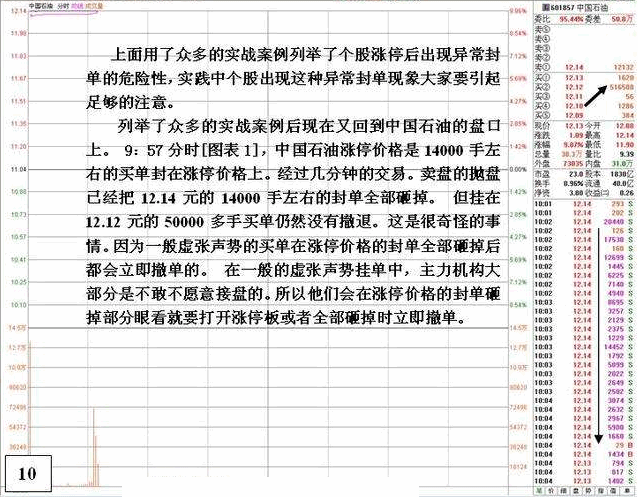 中国石油 分时 均线 成交量
12.14
11.95
11.82
11.66
11.51
11.35
11.20
11.04
10.88
10.73
10.57
10.41
10.26
10.10
14.5万
12.7万
10.9万
90620
72496
54372
36248
18124
9.96%
0.00%
14.5万
12.7万
10.9万
90620
72496
54372
36248
18124
上面用了众多的实战案例列举了个股涨停后出现异常封
单的危险性，实践中个股出现这种异常封单现象大家要引起
足够的注意。
列举了众多的实战案例后现在又回到中国石油的盘口
上。 9：57 分时[图表 1]，中国石油涨停价格是 14000 手左
右的买单封在涨停价格上。经过几分钟的交易。卖盘的抛盘
已经把 12.14 元的 14000 手左右的封单全部砸掉。 但挂在
12.12 元的 50000 多手买单仍然没有撤退。这是很奇怪的事
情。因为一般虚张声势的买单在涨停价格的封单全部砸掉后
都会立即撤单的。 在一般的虚张声势挂单中，主力机构大
部分是不敢不愿意接盘的。所以他们会在涨停价格的封单砸
掉部分眼看就要打开涨停板或者全部砸掉时立即撤单。
10
601857 中国石油
委比 95.44% 委差 50.8万
卖⑤
卖④
卖③
卖②
卖① 12.14 12132
买① 12.13 1620
买② 12.12 516508
买③ 12.11 56
买④ 12.10 1286
买⑤ 12.09 384
现价 12.13 今开 12.00
涨跌 1.09 最高 12.14
涨幅 9.87% 最低 11.90
总量 38.3万 量比 9.39
外盘 73035 内盘 31.0万
市盈 23.0 股本 1830亿
换手 0.96% 流通 40.0亿
净资 3.80 收益㈡ 0.26
10:01 12.14 293 S
10:01 12.14 202 S
10:02 12.14 20440 S
10:02 12.14 126 S
10:02 12.14 17530 S
10:02 12.14 160 S
10:02 12.14 12699 S
10:02 12.14 1445 S
10:02 12.14 6225 S
10:02 12.14 7140 S
10:02 12.14 4940 S
10:03 12.14 8695 S
10:03 12.14 3257 S
10:03 12.14 2129 S
10:03 12.14 2375 S
10:03 12.14 1229 S
10:03 12.14 14452 S
10:03 12.14 1792 S
10:03 12.14 5099 S
10:03 12.14 2022 S
10:03 12.14 2649 S
10:03 12.14 2502 S
10:04 12.14 3074 S
10:04 12.14 2632 S
10:04 12.14 2967 S
10:04 12.14 5900 S
10:04 12.14 1660 S
10:04 12.14 29 B
10:04 12.14 1434 B
10:04 12.13 794 S
10:04 12.13 817 S
10:04 12.13 1402 S
笔 价 细 盘 势 指 值 单